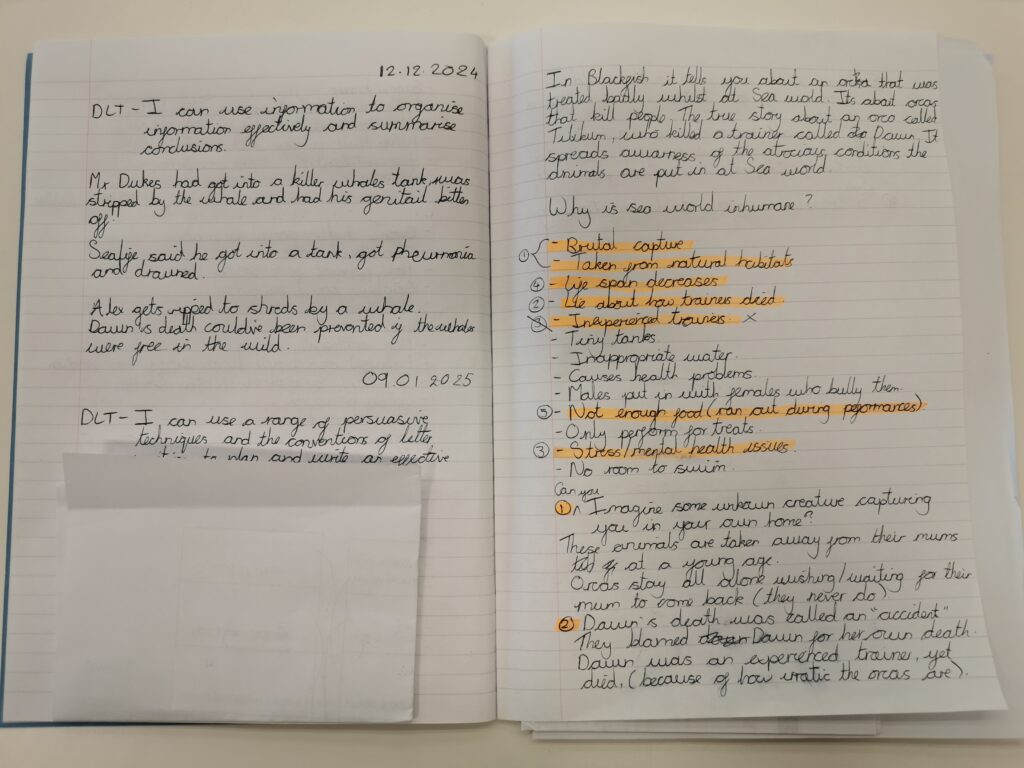 12.12.2024
DLT - I can use information to organise
information effectively and summarise
conclusions.
Mr Dukes had got into a killer whales tank, was
stripped by the whale and had his genitail bitten
off.
said he got into a tank, got Pneurmonia
and drawned.
Alex gets ripped to shreds by a whale.
Dawn is death couldve been provented if the whales
were free in the wild.
09.01.2025
DLT - I can use a range of persuasive
techniques and the conventions of letter
to plan and write an effective
In Blackfish it tells you about an orka that was
treated badly whilst at Sea world. Its about orcas
that kill people. The true story about an orca called
Tilikum, who killed a trainer called Dawn. It
spreads awarness of the atrocious conditions the
animals are put in at Sea world.
Why is sea world inhumane?
① - Brutal capture
- Taken from natural habitats
④ - Life span decreases
② - Lie about how trainers died
- Inexperienced trainers. x
- Tiny tanks.
- Inappropriate water.
- Causes health problems.
- Males put in with females who bully them.
⑤ - Not enough food (ran out during performances)
- Only perform for treats.
③ - Stress/mental health issues.
- No room to swim.
Can you
① ^ Imagine some unkown creature capturing
you in your own home?
These animals are taken away from their mums
at a young age.
Orcas stay all alone wishing/waiting for their
mum to come back (they never do)
② Dawn's death was called an "accident"
They blamed Dawn for her own death.
Dawn was an experienced trainer, yet
died, (because of how irratic the orcas are).